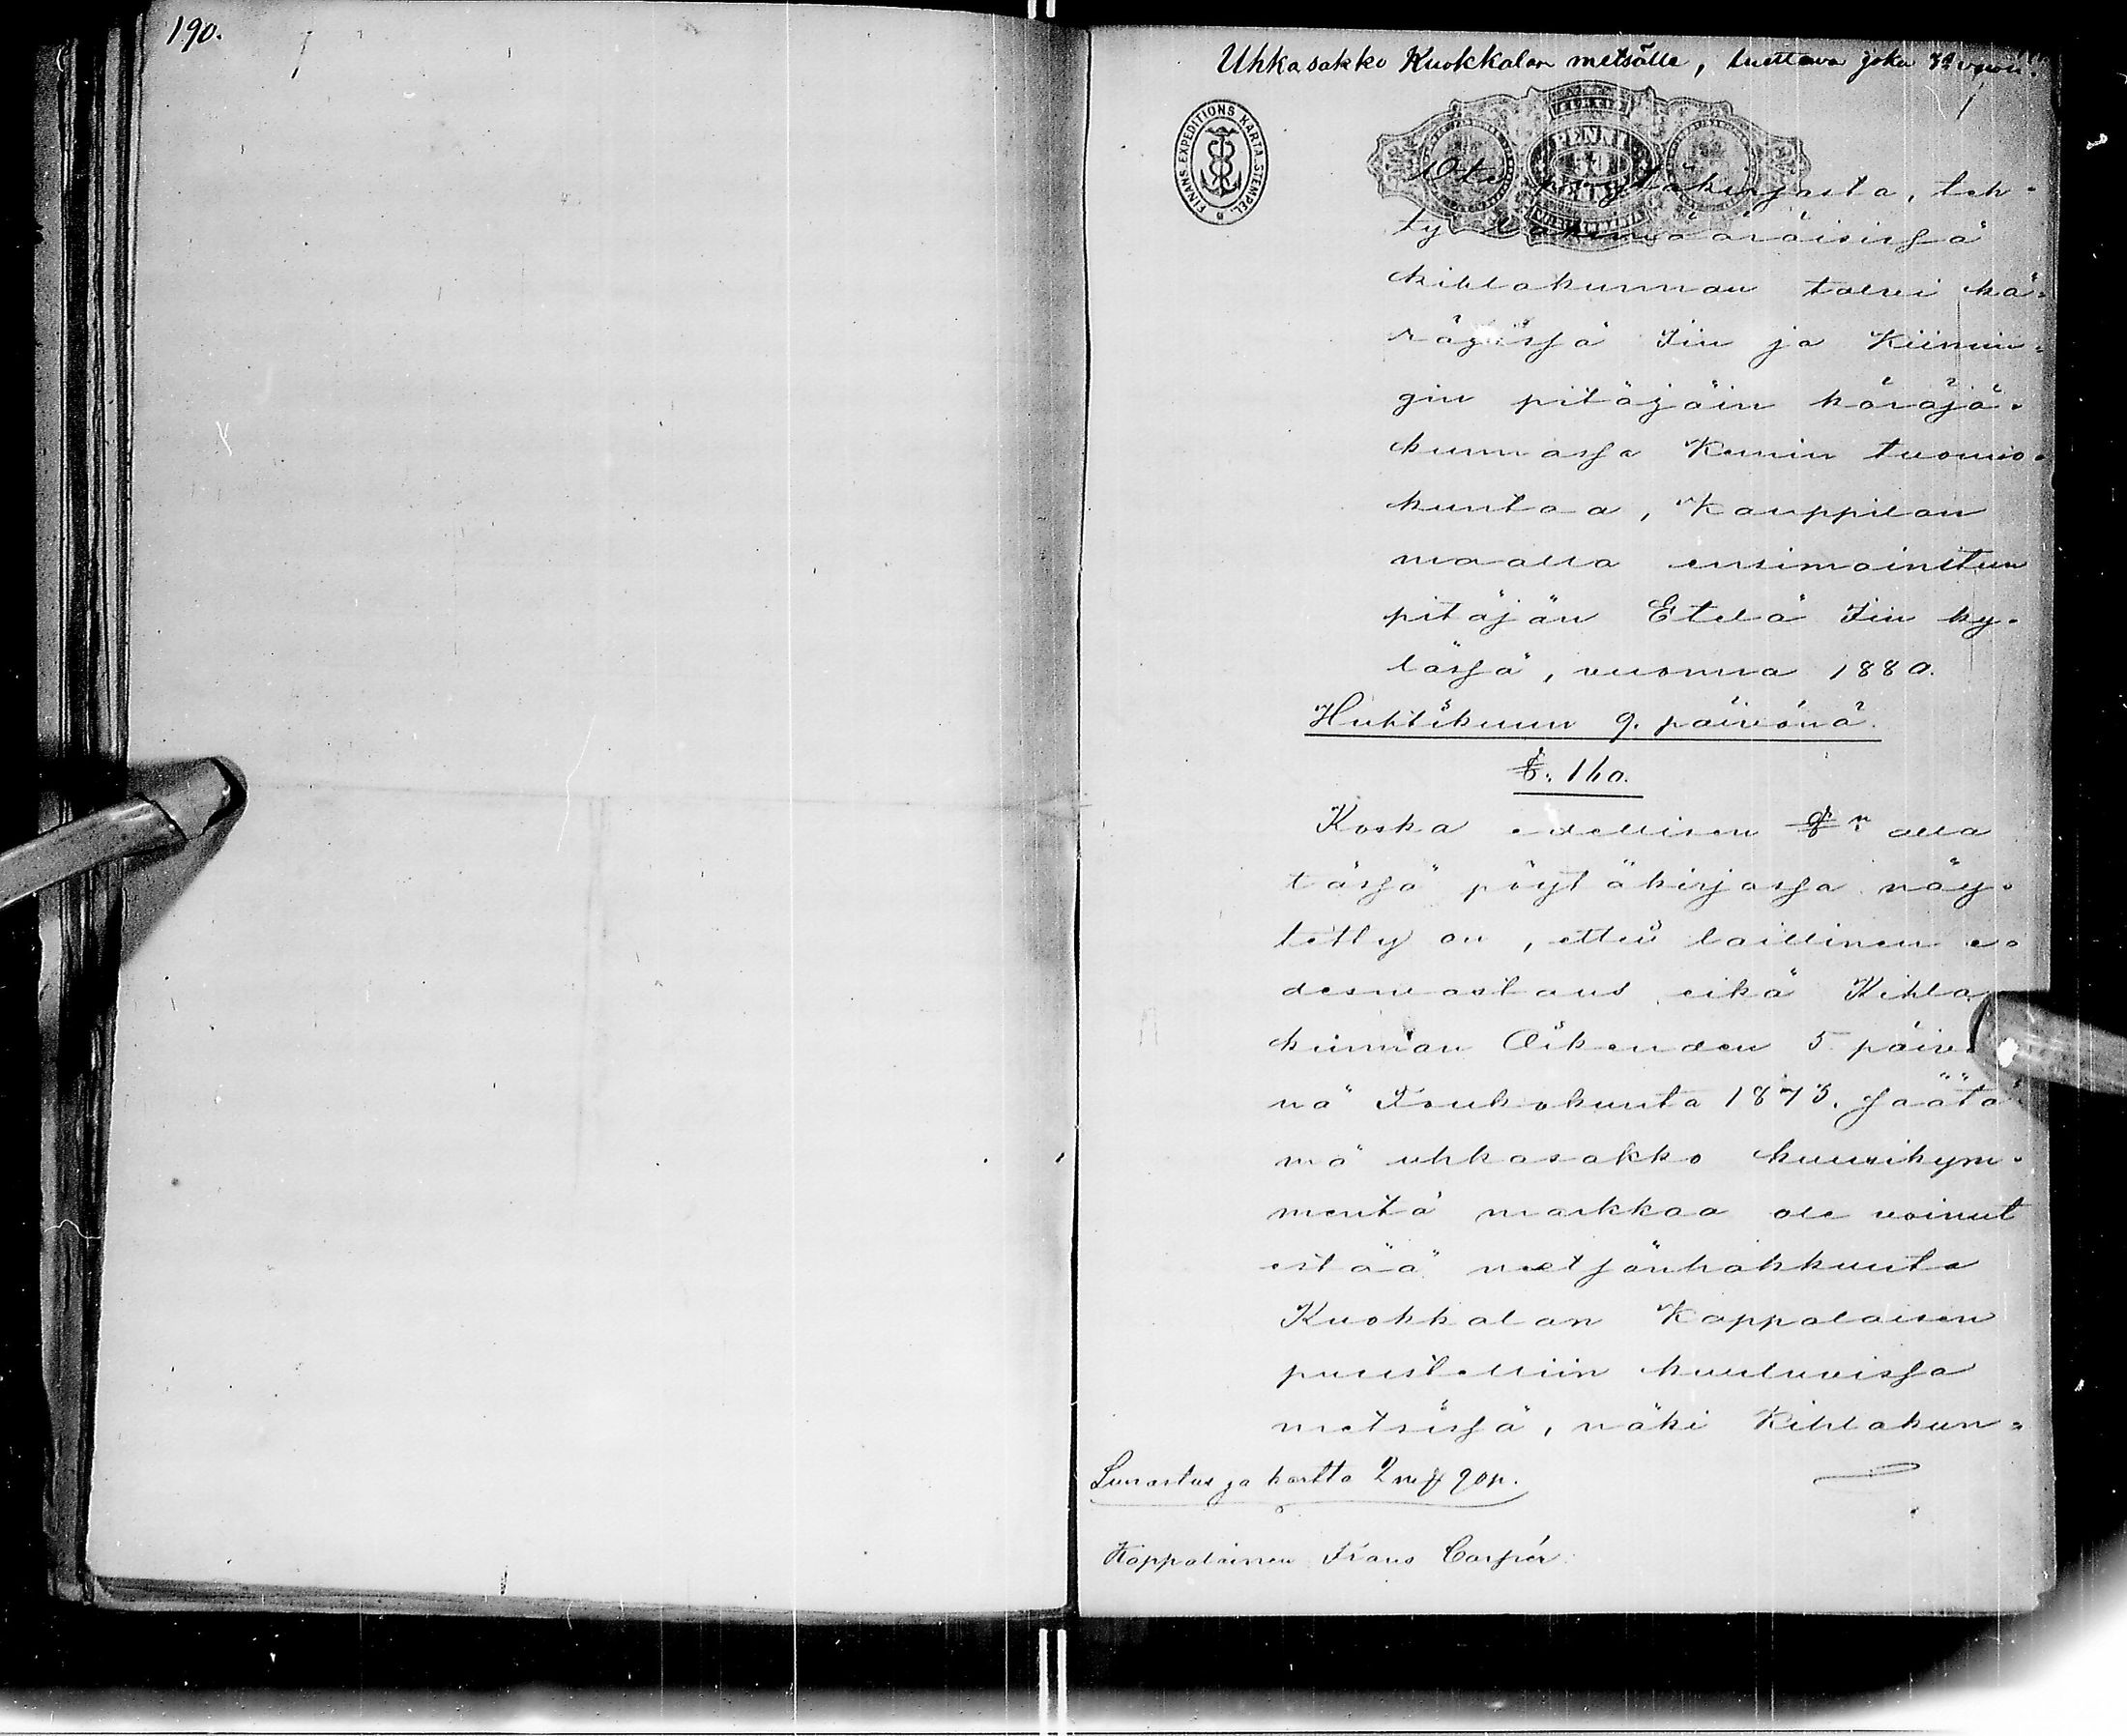 190.
Uhkasakko Kuokkalan metsälle, luettava joka
FINANS. EXPEDITIONS KARTA. STEMPEL.
PENNI
Ote pöytäkirjasta, teh-
ty lakimääräisissä
kihlakunnan talvi kä-
räjissä Iin ja Kiimin-
gin pitäjäin käräjä-
kunnassa Kemin tuomio-
kuntaa, Kauppilan
maalla ensimainitun
pitäjän Etelä Iin ky-
lässä, vuonna 1880.
Huhtikuun 9. päivänä.
§. 160.
Koska edellisen §n alla
tässä pöytäkirjassa näy-
tetty on, ettei laillinen e-
desvastaus eikä Kihla
kunnan Oikeuden 5 päivä
nä Toukokuuta 1873. säätä
mä uhkasakko kuusikym-
mentä markkaa ole voinut
estää metsänhakkuuta
Kuokkalan Kappalaisen
puustelliin kuuluvissa
metsissä, näki Kihlakun-
Lunastus ja kartta 2 mk 90 p.
Kappalainen Frans Caspér